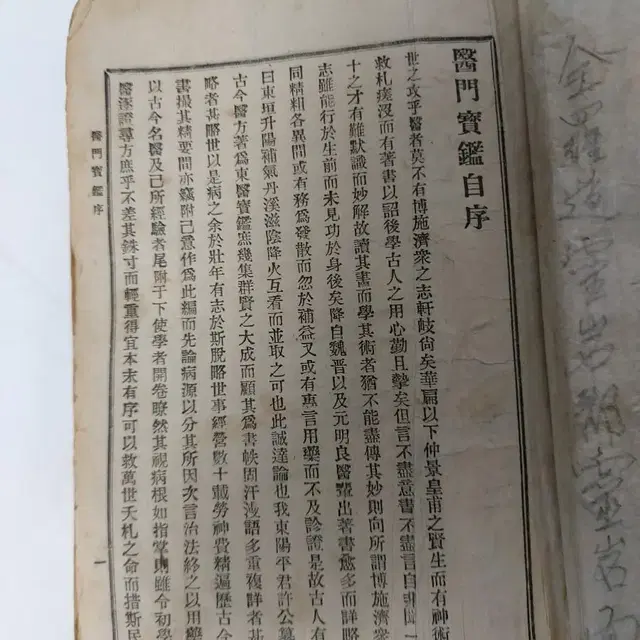 全羅道靈岩郡靈岩
醫門寶鑑自序
世之攻乎醫者莫不有博施濟衆之志軒岐尙矣華扁以下仲景皇甫之賢生而有神術
救札瘥沒而有著書以詔後學古人之用心勤且摯矣但言不盡意書不盡言自非聞一
十之才有難默識而妙解故讀其書而學其術者猶不能盡傳其妙則向所謂博施濟衆
志雖能行於生前而未見功於身後矣降自魏晋以及元明良醫輩出著書愈多而詳略
同精粗各異間或有務爲發散而忽於補益又或有專言用藥而不及診證是故古人有
曰東垣升陽補氣丹溪滋陰降火互看而並取之可也此誠達論也我東陽平君許公蒐
古今醫方著爲東醫寶鑑庶幾集群賢之大成而顧其爲書帙固汗漫語多重複詳者甚
略者甚略世以是病之余於壯年有志於斯脫略世事經營數十載勞神費精遍歷古今
書撮其精要間亦竊附己意作爲此編而先論病源以分其所因次言治法終之以用藥
以古今名醫及己所經驗者尾附于下使學者開卷瞭然其視病根如指掌雖令初學
醫逐證尋方庶乎不差其銖寸而輕重得宜本末有序可以救萬世夭札之命而措斯民
醫門寶鑑序
一